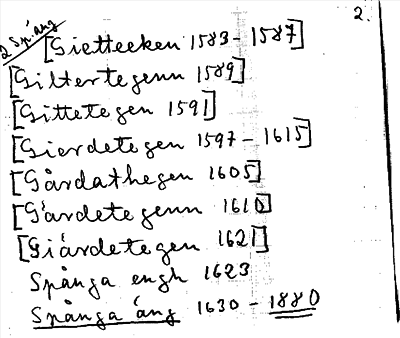 2.
2 Spång
[Gietteeken 1583 - 1587]
[Giltertegenn 1589]
[Gittetegen 1591]
[Gierdetegen 1597 - 1615]
[Gårdathegen 1605]
[Gårdetegenn 1610]
[Giärdetegen 1621]
Spånga engh 1623
Spånga äng 1630 - 1880